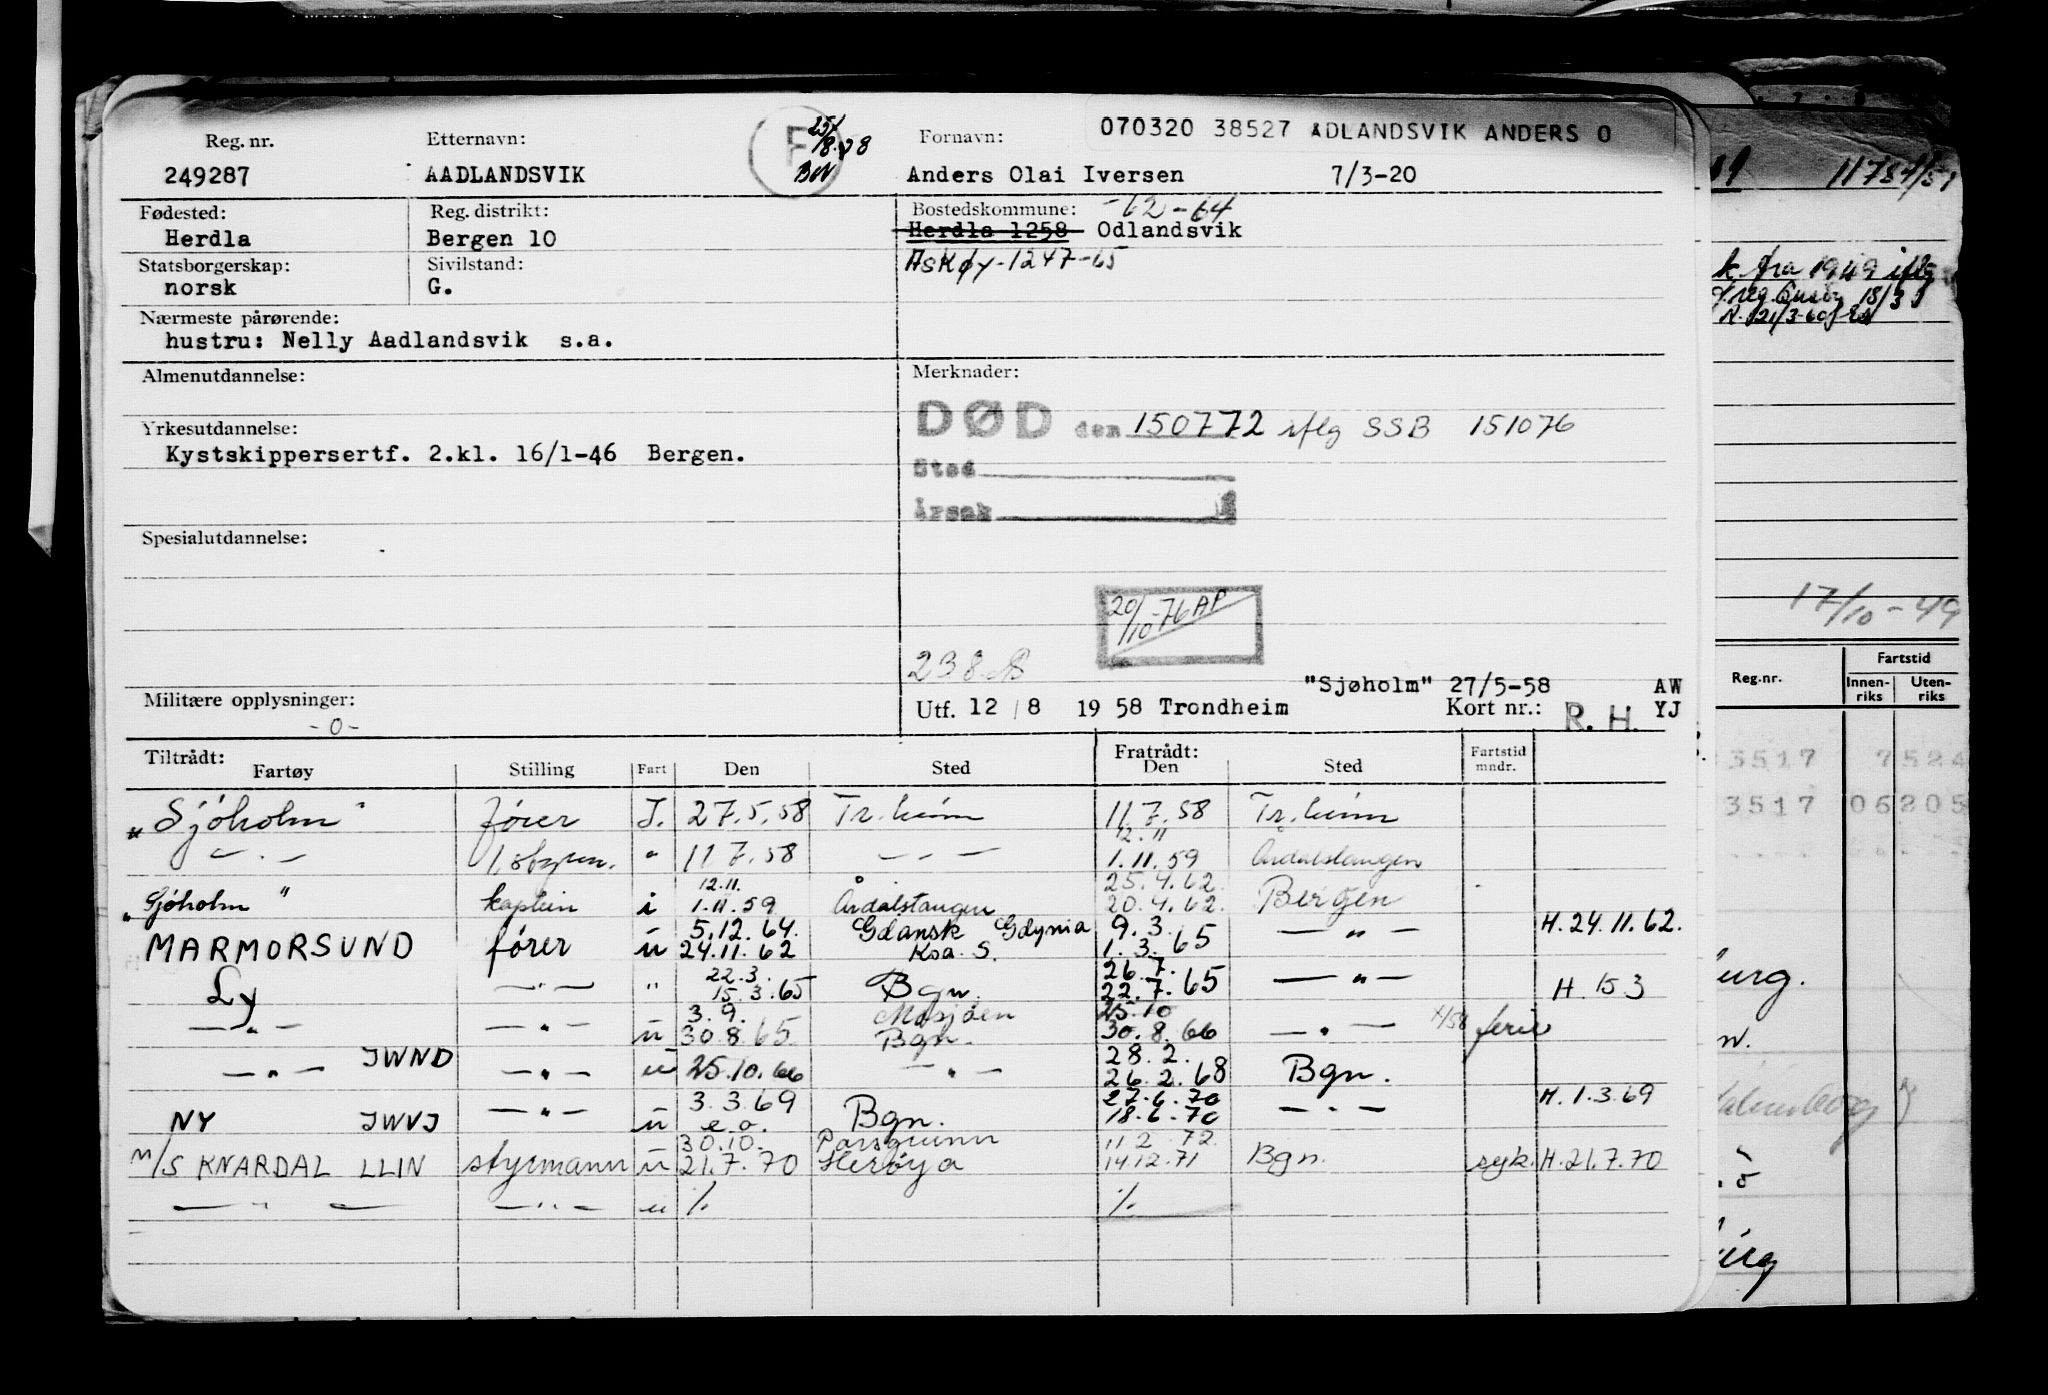 Reg. nr. Etternavn: Fornavn: 070320 38527 ADLANDSVIK ANDERS O
249287 AADLANDSVIK Anders Olai Iversen 7/3-20
Fødested: Reg. distrikt: Bostedskommune: -62-64
Herdla Bergen 10 Herdla 1258 Odlandsvik
Statsborgerskap: Sivilstand: Askøy-1247-65
norsk G.
Nærmeste pårørende:
hustru: Nelly Aadlandsvik s.a.
Almenutdannelse: Merknader:
DØD den 150772 iflg SSB 151076
Yrkesutdannelse:
Kystskippersertf. 2.kl. 16/1-46 Bergen.
Sted
Årsak
Spesialutdannelse:
20/10-76 AP
"Sjøholm" 27/5-58 AW
Militære opplysninger: Utf. 12/8 1958 Trondheim Kort nr.: YJ
-0- R. H.
Tiltrådt: Fratrådt:
Fartøy Stilling Fart Den Sted Den Sted Fartstid mndr.
"Sjöholm" fører I. 27.5.58 Tr.heim 11.7.58 Tr.heim
12.11
— " — " 11 7.58 — " — 1.11.59 Årdalstangen
12.11. 25.4.62.
"Sjöholm" kaptein i 1.11.59 Årdalstangen 20.4.62. Bergen
5.12.64. Gdansk Gdynia 9.3. H.24.11.62.
MARMORSUND fører u 24.11.62 Ksa. S. 1.3.65 — " —
22.3. 26.7.
Ly — " — " 15.3.65 Bgn. 22.7.65 — " — H. 15 3
3.9. Mosjøen 25.10
— " — — " — u 30.8.65 Bgn. 30.8.66 — " — ferie
JWND 28.2.
— " — — " — u 25.10.66 — " — 26.2.68 Bgn.
3.3.69 27.6.70 H.1.3.69
NY JWVJ — " — u e.o. Bgn. 18.6.70 — " —
30.10. Porsgrunn 11 2 72
M/S KNARDAL LLIN styrmann u 21.7.70 Herøya 14.12.71 Bgn. syk. H.21.7.70
— " — — " — u %. %.
11784/51
k. fra 1949 iflg
18/3
21/3-60
17/10-49
Reg.nr. Fartstid
Innen-riks Uten-riks
3517 7524
3517 06205